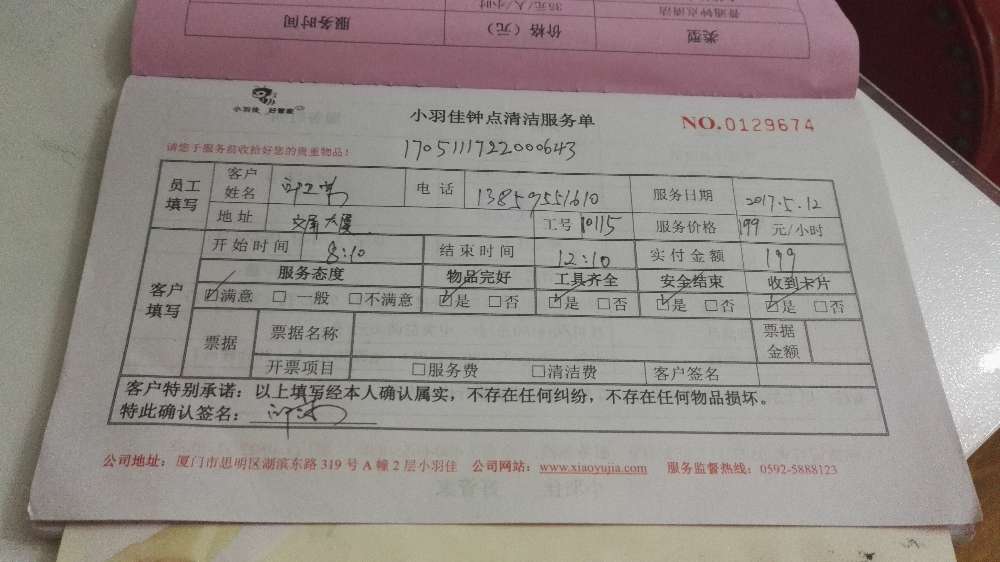 服务时间 价格（元） 类型
35元/人/小时 普通钟点清洁
小羽佳 好管家
小羽佳钟点清洁服务单
NO.0129674
请您于服务前收拾好您的贵重物品！
1705111722000643
员工填写 客户姓名 电话 13859551610 服务日期 2017.5.12
地址 大厦 工号 10115 服务价格 199 元/小时
客户填写 开始时间 8:10 结束时间 12:10 实付金额 199
服务态度 物品完好 工具齐全 安全结束 收到卡片
☑满意 □一般 □不满意 ☑是 □否 ☑是 □否 ☑是 □否 ☑是 □否
票据 票据名称 票据金额
开票项目 □服务费 □清洁费 客户签名
客户特别承诺：以上填写经本人确认属实，不存在任何纠纷，不存在任何物品损坏。
特此确认签名：
公司地址：厦门市思明区湖滨东路319号A幢2层小羽佳 公司网站：www.xiaoyujia.com 服务监督热线：0592-5888123